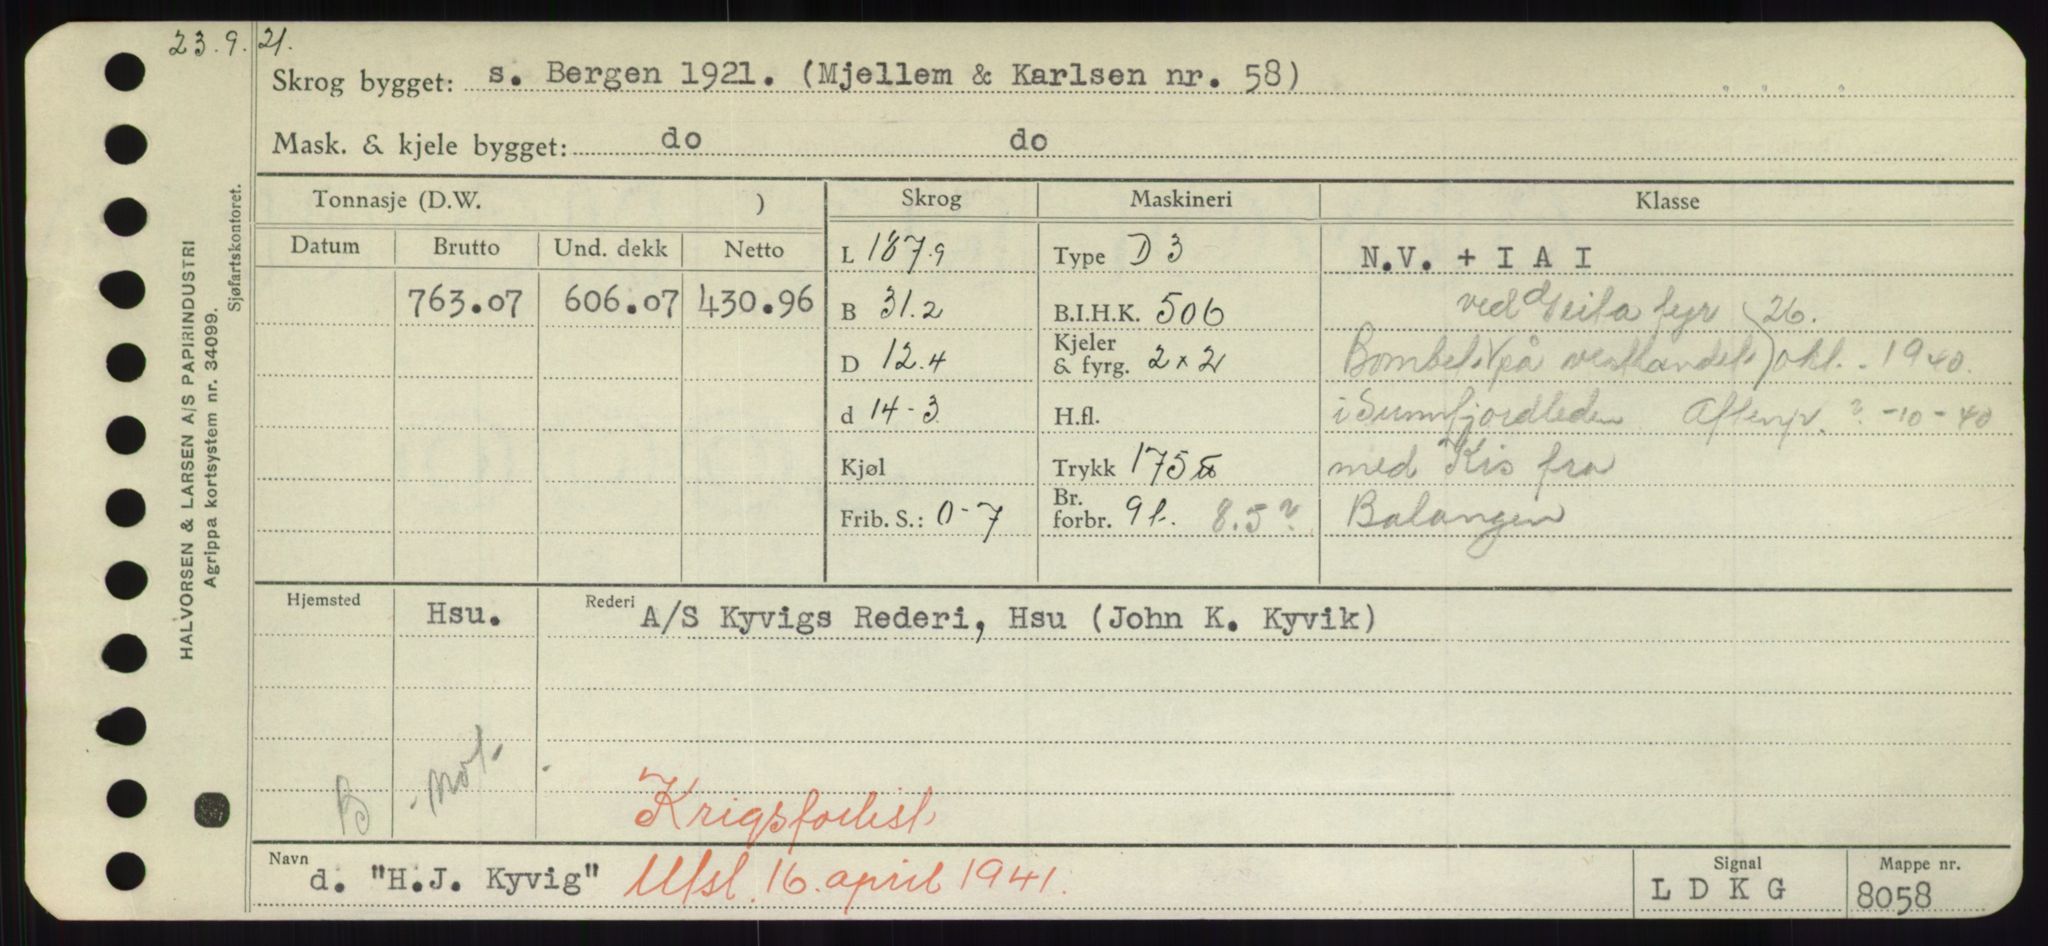 23.9.21.
Skrog bygget: s. Bergen 1921. (Mjellem & Karlsen nr. 58)
Mask. & kjele bygget: do do
Tonnasje (D.W. ) Skrog Maskineri Klasse
Datum Brutto Und. dekk Netto L 187.9 Type D 3 N.V. + I A I
763.07 606.07 430.96 B 31.2 B.I.H.K. 506 ved Geita fyr 26.
D 12.4 Kjeler & fyrg. 2 x 2 Bombet på vestlandet okt. 1940.
d 14-3 H.fl. i Sunnfjordleden Aftenp. ?-10-40
Kjøl Trykk 175 med Kis fra
Frib. S.: 0-7 Br. forbr. 9 t. 8.5? Balangen
Hjemsted Hsu. Rederi A/S Kyvigs Rederi, Hsu (John K. Kyvik)
B not.
Krigsforlist
Navn d. "H.J. Kyvig" Utsl. 16. april 1941.
Signal L D K G
Mappe nr. 8058
HALVORSEN & LARSEN A/S PAPIRINDUSTRI
Agrippa kortsystem nr. 34099.
Sjøfartskontoret.